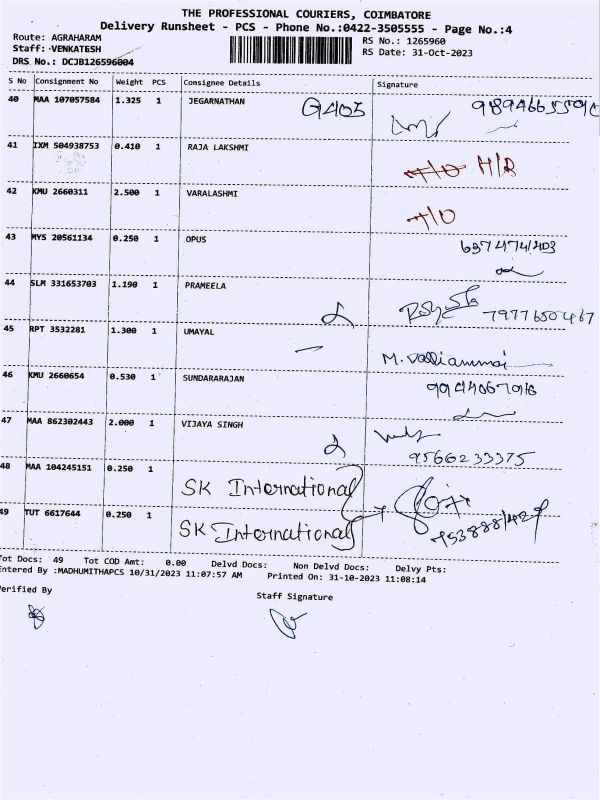 THE PROFESSIONAL COURIERS, COIMBATORE
Delivery Runsheet - PCS - Phone No.:0422-3505555 - Page No.:4
Route: AGRAHARAM
RS No.: 1265960
Staff: VENKATESH
RS Date: 31-Oct-2023
DRS No.: DCJB126596004
S No Consignment No Weight PCS Consignee Details Signature
40 MAA 107057584 1.325 1 JEGARNATHAN G405
41 IXM 504938753 0.410 1 RAJA LAKSHMI
42 KMU 2660311 2.500 1 VARALASHMI
43 MYS 20561134 0.250 1 OPUS
44 SLM 331653703 1.190 1 PRAMEELA 7977650467
45 RPT 3532281 1.300 1 UMAYAL M. Valliammai
46 KMU 2660654 0.530 1 SUNDARARAJAN
47 MAA 862302443 2.000 1 VIJAYA SINGH 9566233375
48 MAA 104245151 0.250 1 SK International
49 TUT 6617644 0.250 1 SK International
Tot Docs: 49 Tot COD Amt: 0.00 Delvd Docs: Non Delvd Docs: Delvy Pts:
Entered By :MADHUMITHAPCS 10/31/2023 11:07:57 AM Printed On: 31-10-2023 11:08:14
Verified By
Staff Signature